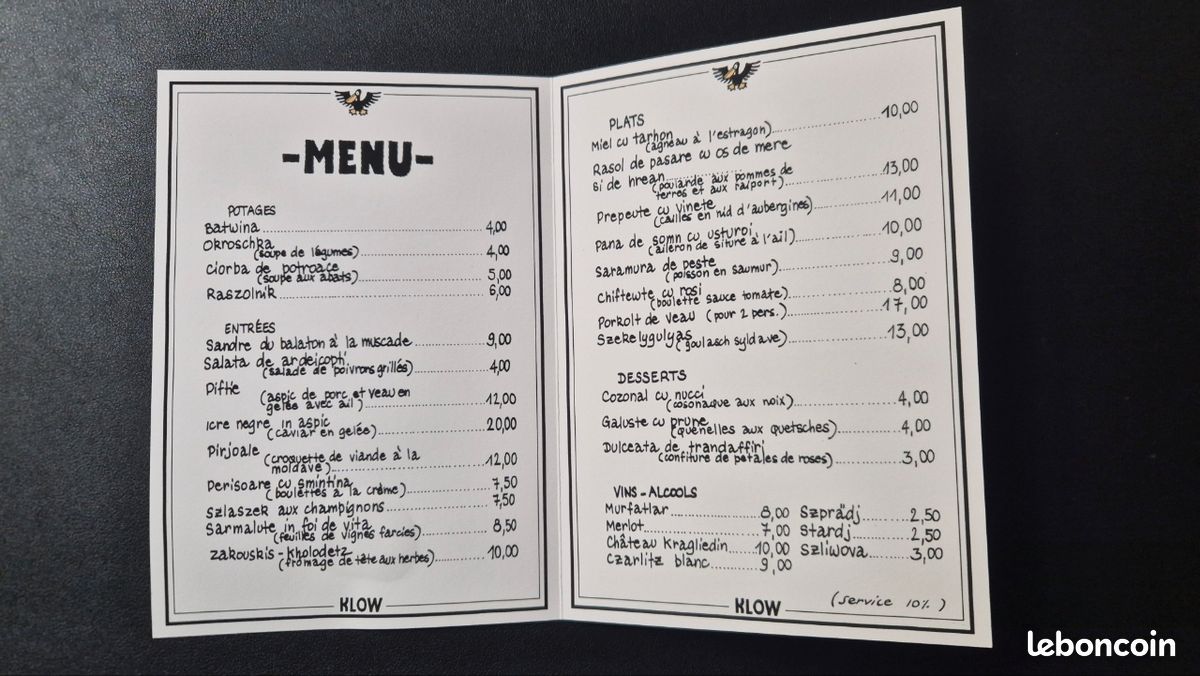 -MENU-
POTAGES
Batwina..........4,00
Okroschka
(soupe de légumes)..........4,00
Ciorba de potroace
(soupe aux abats)..........5,00
Raszolnik..........6,00
ENTRÉES
Sandre du balaton à la muscade..........9,00
Salata de ardeicopti
(salade de poivrons grillés)..........4,00
Piftie
(aspic de porc et veau en
gelée avec ail)..........12,00
icre negre in aspic
(caviar en gelée)..........20,00
Pirjoale (croquette de viande à la
moldave)..........12,00
Perisoare cu smintina
(boulettes à la crème)..........7,50
Szlaszek aux champignons..........7,50
Sarmalute in foi de vita
(feuilles de vignes farcies)..........8,50
Zakouskis-kholodetz
(fromage de tête aux herbes)..........10,00
KLOW
PLATS
Miel cu tarhon
(agneau à l'estragon)..........10,00
Rasol de pasare cu os de mere
si de hrean
(poularde aux pommes de
terres et aux raifort)..........13,00
Prepeute cu vinete
(cailles en nid d'aubergines)..........11,00
Pana de somn cu usturoi
(aileron de silure à l'ail)..........10,00
Saramura de peste
(poisson en saumur)..........9,00
Chifteute cu rosi
(boulette sauce tomate)..........8,00
Porkolt de veau (pour 2 pers.)..........17,00
Szekelygulyas
(goulasch syldave)..........13,00
DESSERTS
Cozonal cu nucci
(cosonaque aux noix)..........4,00
Galuste cu prune
(quenelles aux quetsches)..........4,00
Dulceata de trandaffiri
(confiture de pétales de roses)..........3,00
VINS-ALCOOLS
Murfatlar..........8,00 Szprädj..........2,50
Merlot..........7,00 Stardj..........2,50
Château Kragliedin..........10,00 Szliwova..........3,00
Czarlitz blanc..........9,00
KLOW
(service 10%)
leboncoin